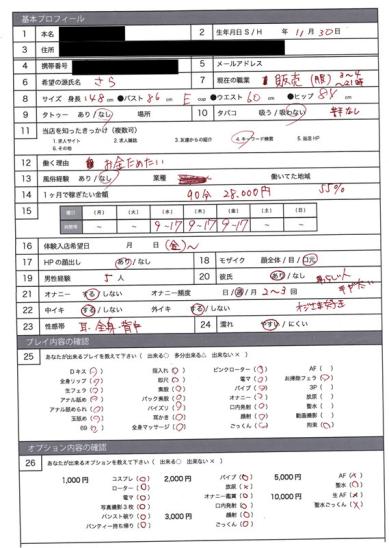 基本プロフィール
1 本名 2 生年月日 S / H 年 11 月 30 日
3 住所
4 携帯番号 5 メールアドレス
6 希望の源氏名 さら 7 現在の職業 販売 (服)
8 サイズ 身長 148 cm ●バスト 86 cm E cup ●ウエスト 60 cm ●ヒップ 88 cm
9 タトゥー あり / なし 場所 10 タバコ 吸う / 吸わない
11 当店を知ったきっかけ (複数可)
1.求人サイト 2.求人雑誌 3.友達からの紹介 4.キーワード検索 5.当店HP
6.その他
12 働く理由 お金ためたい
13 風俗経験 あり / なし 業種 働いてた地域
14 1ヶ月で稼ぎたい金額 90分 28.000円 55%
15 曜日 (月) (火) (水) (木) (金) (土) (日)
~ ~ 9~17 9~17 9~17 ~ ~
16 体験入店希望日 月 日 (金) ~
17 HPの顔出し あり / なし 18 モザイク 顔全体 / 目 / 口元
19 男性経験 5 人 20 彼氏 あり / なし
21 オナニー する / しない オナニー頻度 日 / 週 / 月 2~3 回
22 中イキ する / しない 外イキ する / しない
23 性感帯 耳 全身 背中 24 濡れ やすい / にくい
プレイ内容の確認
25 あなたが出来るプレイを教えて下さい ( 出来る○ 多分出来る△ 出来ない× )
Dキス 指入れ ピンクローター AF
全身リップ 即尺 電マ お掃除フェラ
生フェラ 素股 バイブ 3P
アナル舐め バック素股 オナニー 放尿
アナル舐められ パイズリ 口内発射 聖水
玉舐め 耳かき 顔射 動画撮影
69 全身マッサージ ごっくん 拘束
オプション内容の確認
26 あなたが出来るオプションを教えて下さい ( 出来る○ 出来ない× )
1,000円 コスプレ (○) 2,000円 バイブ (○) 5,000円 AF (×)
ローター (○) 放尿 聖水
電マ (○) オナニー鑑賞 10,000円 生AF (×)
写真撮影3枚 (○) 口内発射 聖水ごっくん (×)
パンスト破り (○) 3,000円 顔射
パンティー持ち帰り (○) ごっくん (○)